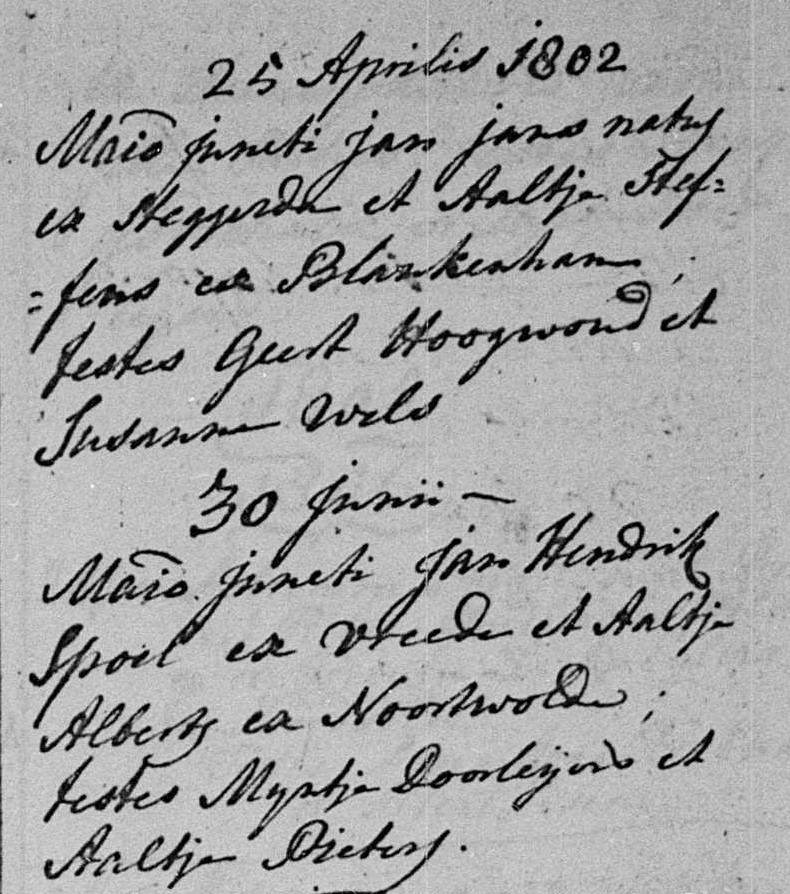 25 Aprilis 1802
Maīo juncti jan jans natus
ex Steggerda et Aaltje Stef=
=fens ex Blankenham;
testes Geert Hoogwoud et
Susanna Wels
30 junii —
Maīo juncti Jan Hendrik
Spoel ex Vreede et Aaltje
Alberts ex Noortwolde;
testes Myntje Doorleijers et
Aaltje Pieters.